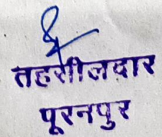 तहसीलदार
पूरनपुर